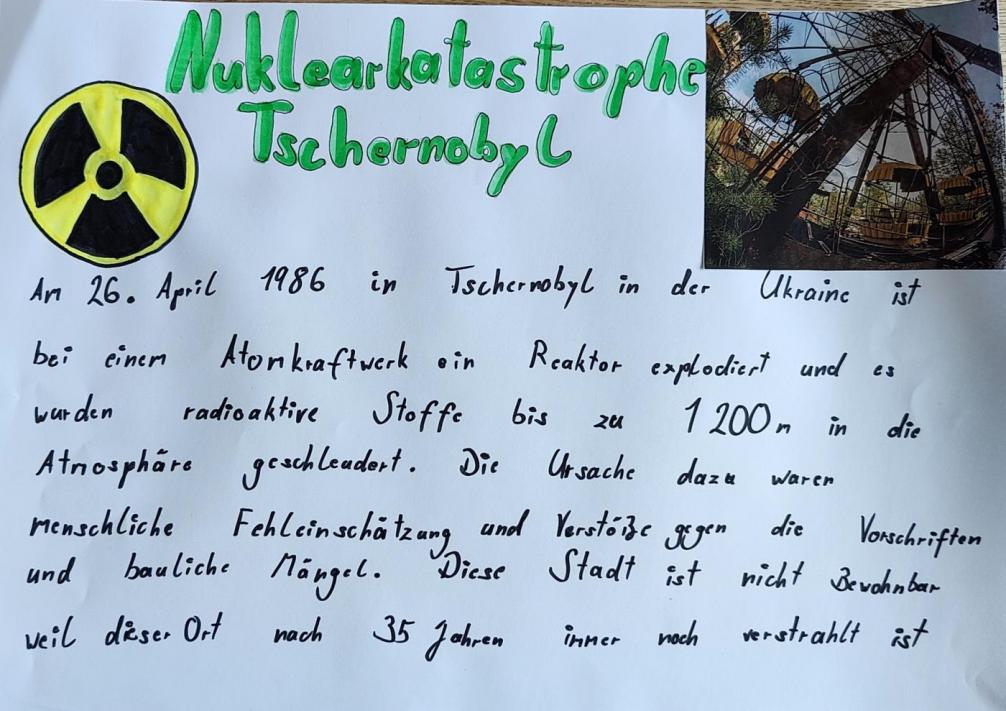 Nuklearkatastrophe
Tschernobyl
Am 26. April 1986 in Tschernobyl in der Ukraine ist
bei einem Atomkraftwerk ein Reaktor explodiert und es
wurden radioaktive Stoffe bis zu 1200m in die
Atmosphäre geschleudert. Die Ursache dazu waren
menschliche Fehleinschätzung und Verstöße gegen die Vorschriften
und bauliche Mängel. Diese Stadt ist nicht Bewohnbar
weil dieser Ort nach 35 Jahren immer noch verstrahlt ist